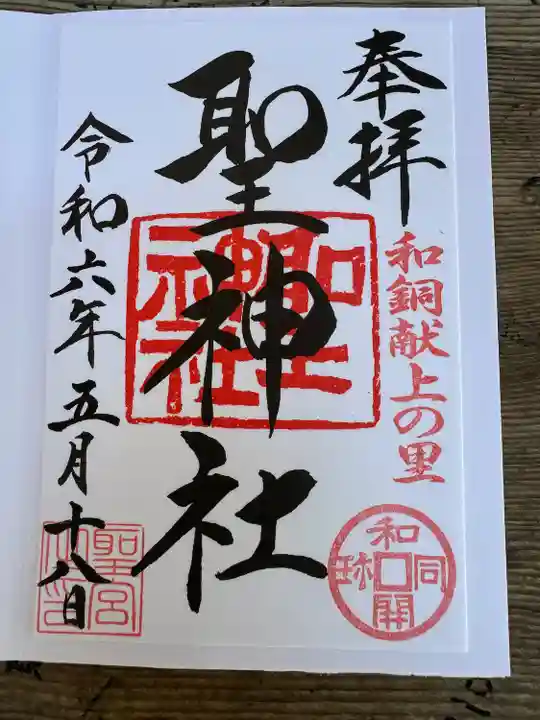 奉拝
和銅献上の里
和同開珎
聖神社
聖神社
令和六年五月十八日